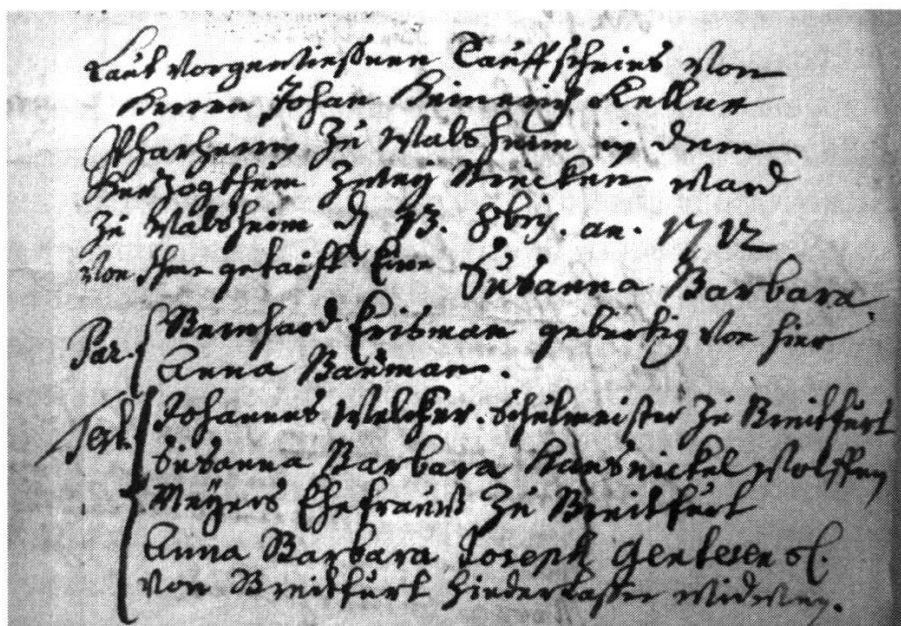 Laut vorgewiesenen Tauffscheins von
Herren Johan Heinrich Keller
Pfarherrn zu Walsheim in dem
Herzogthum Zweybrücken ward
zu Walsheim d. 13. 8bris. an. 1712
von ihme getaufft Eine Susanna Barbara.
Par. Bernhard Erisman gebürtig von hier
Anna Bauman.
Test. Johannes Welcker. Schulmeister zu Breitfurt
Susanna Barbara Hansnickel
Meÿers Ehefrauw zu Breitfurt
Anna Barbara Joseph sl.
von Breitfurt hinderlassen widwen.